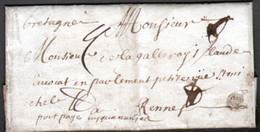 Bretagne
Monsieur
Monsieur de la galleray Claude
avocat en parlement petite rüe St mi
chele
Rennes
port payé